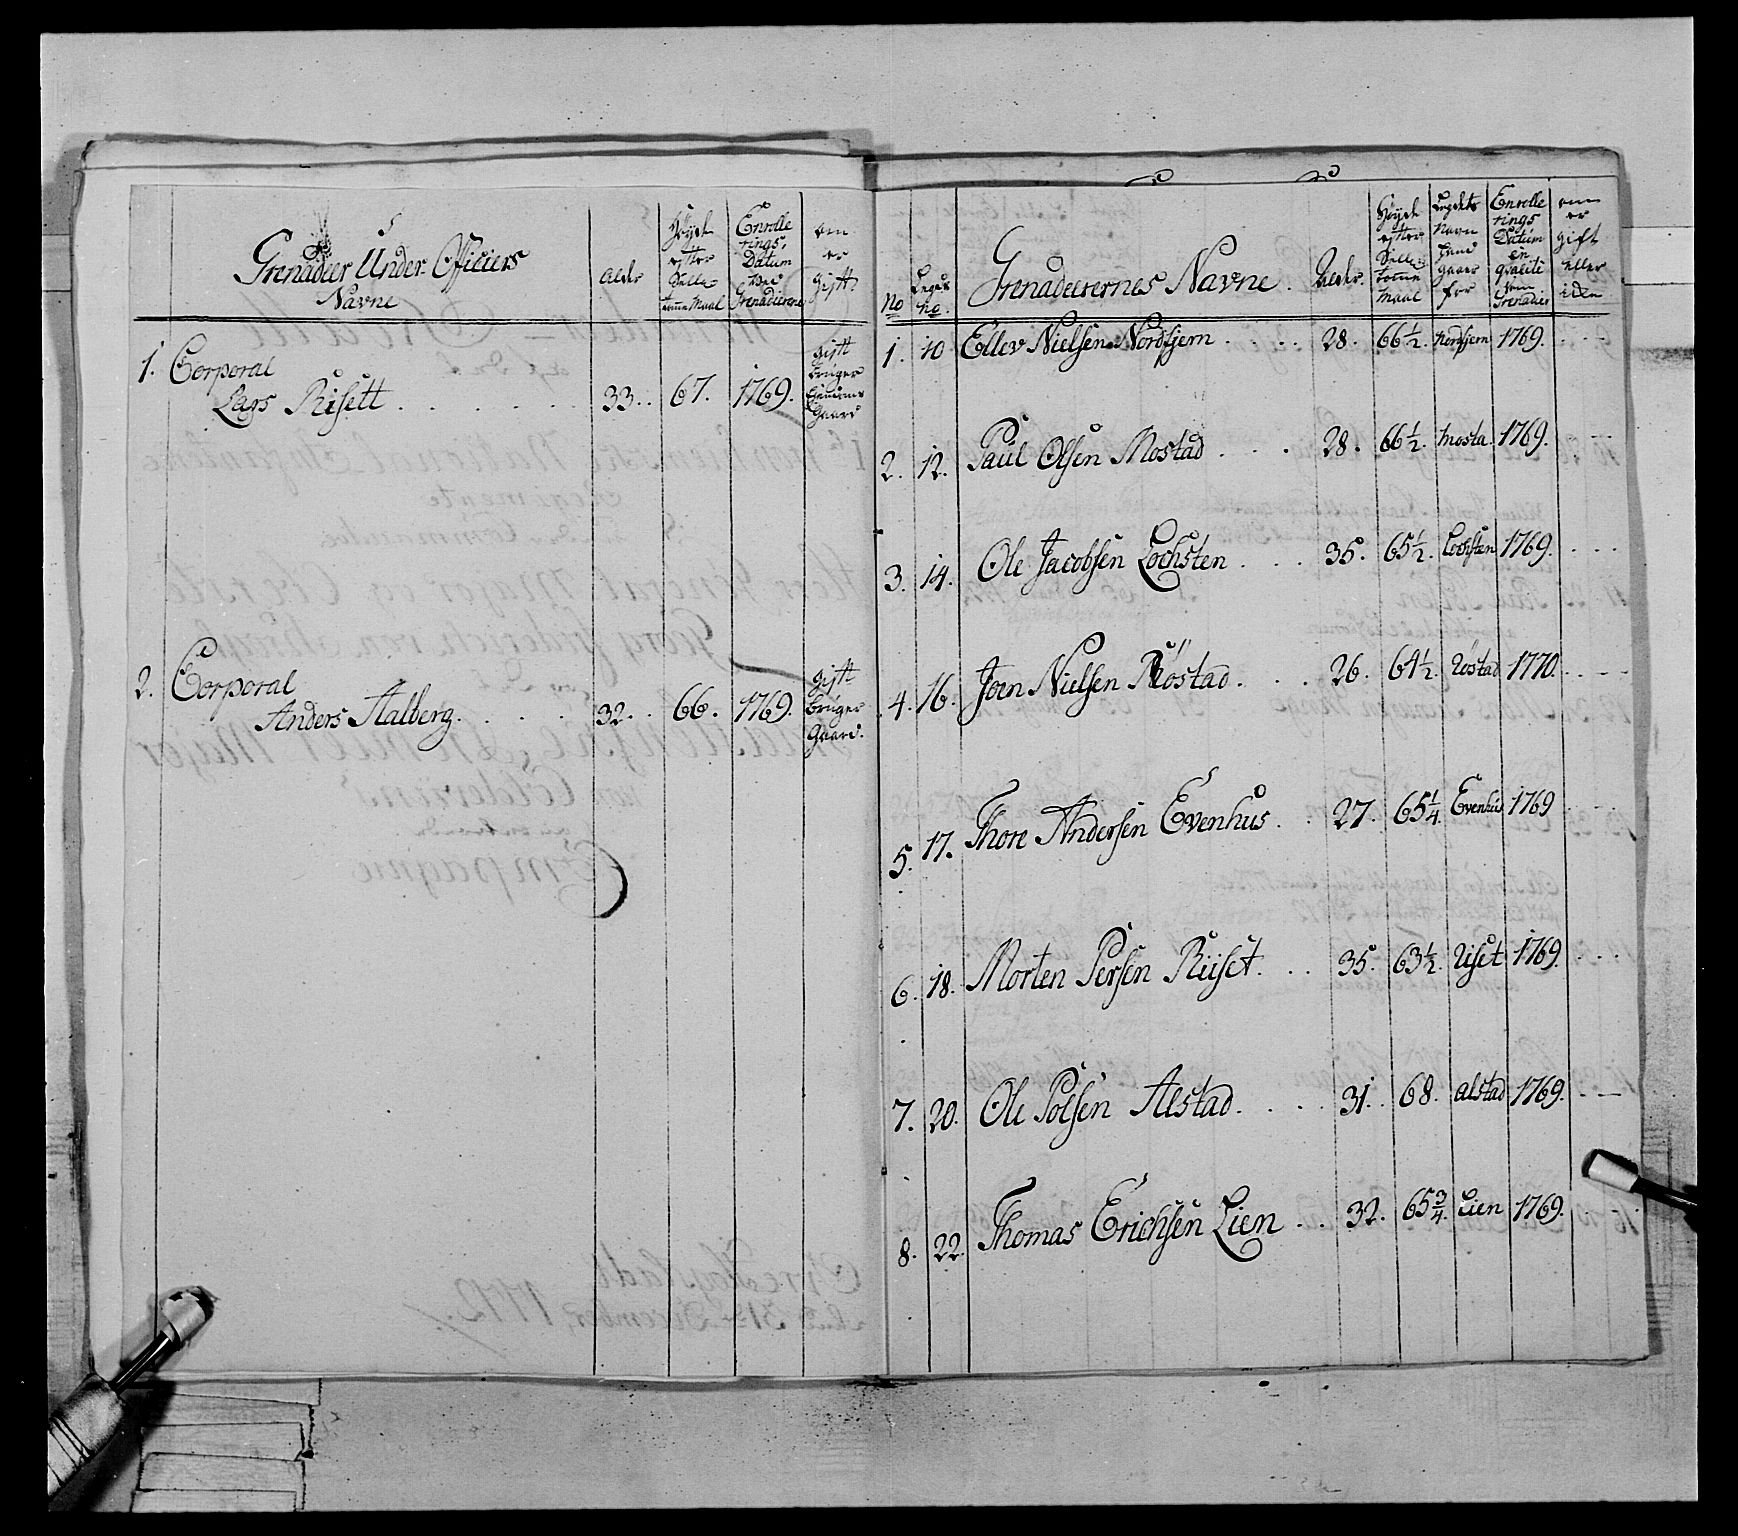 Grenadeer Under Officiers
Navne
Alder
Høyde
efter
Sella
tomme Maal
Enrolle
rings
Datum
ved
Grenadiererne
om
er
gift
1. Corporal
Lars Risett 33. 67. 1769.
gift
bruger
Gaard
2. Corporal
Anders Aalberg. 32. 66. 1769.
gift
bruger
Gaard.
No
Legds
No.
Grenadeerernes Navne.
Alder.
Høyde
efter
Sella
tomme
Maal
Legdets
Navn
hand
gaaer
for
Enrolle
rings
Datum
en
qvalité
som
Grenadier
om
er
gift
eller
iden
1. 10. Ellev Nielsen Nordfjern 28. 66½. Nordfjern 1769.
2. 12. Paul Olsen Mostad 28. 66½. Mosta. 1769.
3. 14. Ole Jacobsen Lochsten 35. 65½. Lochsten 1769.
4. 16. Joen Nielsen Röstad. 26. 64½. Röstad 1770.
5. 17. Thore Andersen Evenhus. 27. 65¼. Evenhus 1769
6. 18. Morten Persen Riiset. 35. 63½. Riset 1769.
7. 20. Ole Polsen Alstad. 31. 68. alstad 1769.
8. 22. Thomas Erichsen Lien 32. 65¾. Lien 1769.